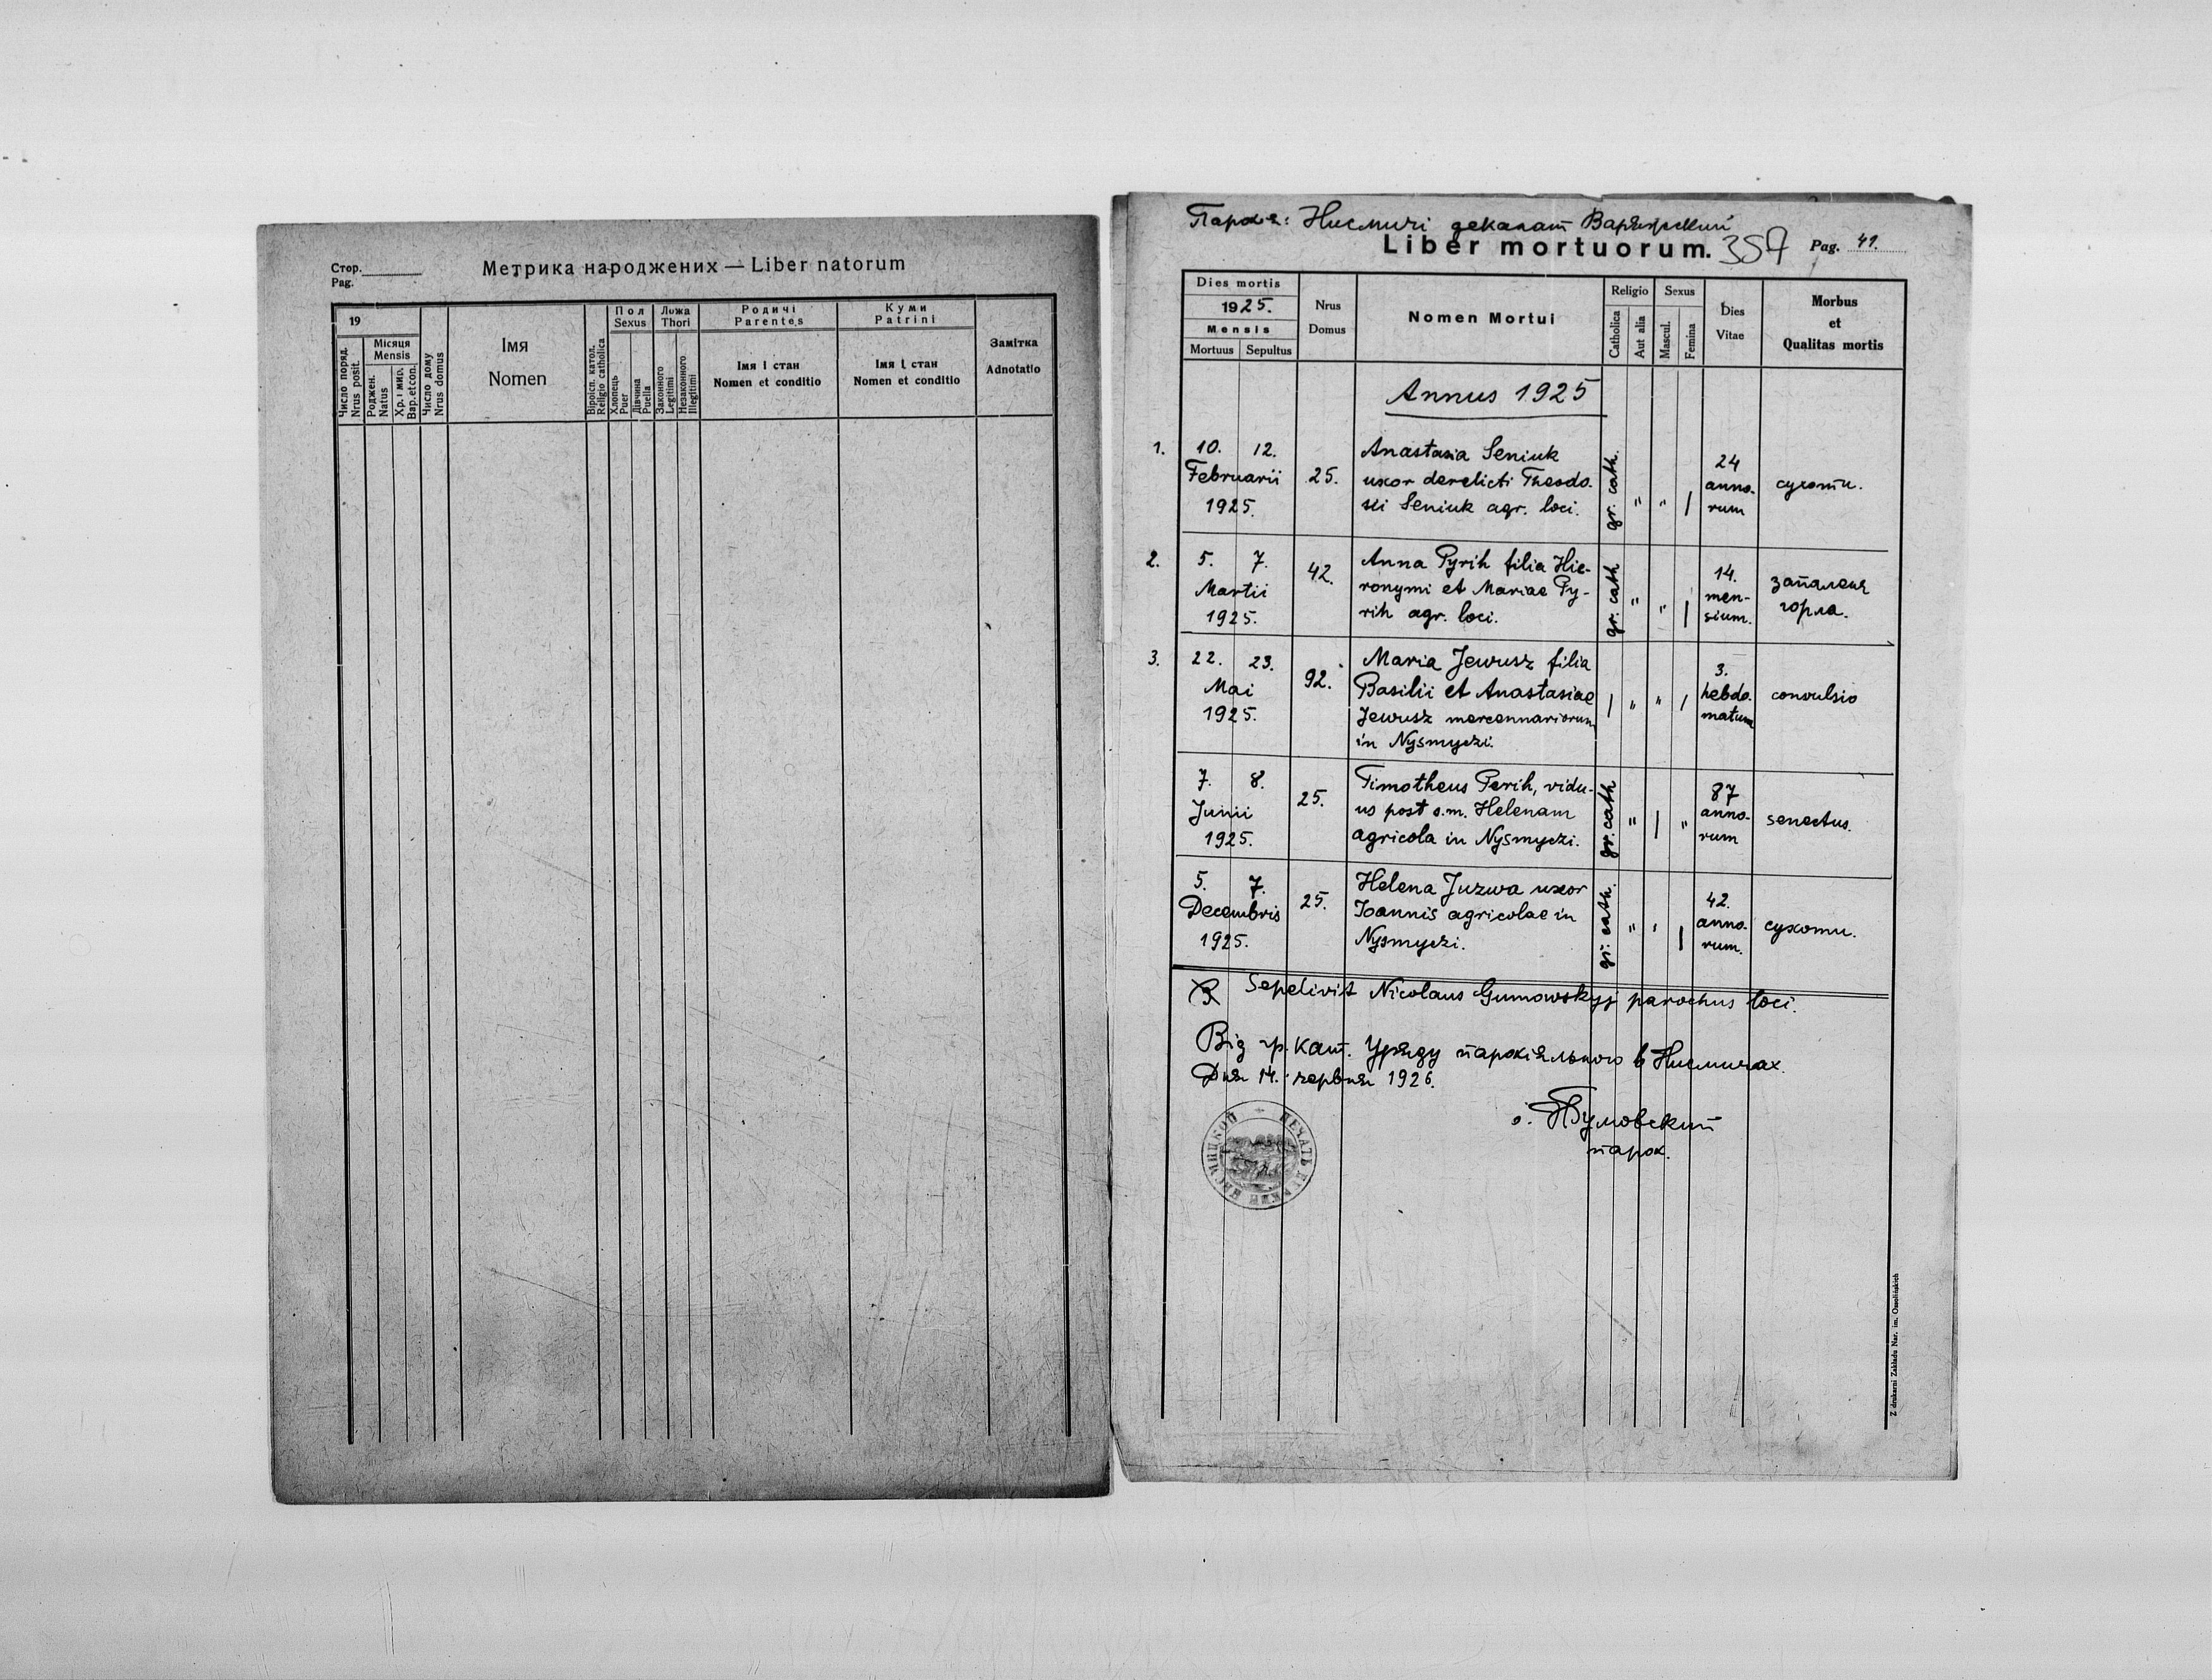 Стор.
Pag.
Метрика народжених — Liber natorum
19
Число поряд.
Nrus posit.
Місяця
Mensis
Роджен.
Natus
Хр. і мир.
Bap. et con.
Число дому
Nrus domus
Імя
Nomen
Віроісп. катол.
Religio catholica
Пол
Sexus
Хлопець
Puer
Дівчина
Puella
Ложа
Thori
Законного
Legitimi
Незаконного
Illegitimi
Родичі
Parentes
Імя і стан
Nomen et conditio
Куми
Patrini
Імя і стан
Nomen et conditio
Замітка
Adnotatio
Парохія: Нисмичі деканат Варяжский
Liber mortuorum. 357 Pag. 41.
Dies mortis
1925.
Mensis
Mortuus Sepultus
Nrus
Domus
Nomen Mortui
Religio
Catholica
Aut alia
Sexus
Mascul.
Femina
Dies
Vitae
Morbus
et
Qualitas mortis
Annus 1925
1. 10. 12.
Februarii
1925.
25.
Anastasia Seniuk
uxor derelicti Theodo-
sii Seniuk agr. loci.
gr. cath. " " /
24
anno-
rum
сухоти.
2. 5. 7.
Martii
1925.
42.
Anna Pyrih filia Hie-
ronymi et Mariae Py-
rih agr. loci.
gr. cath " " /
14.
men-
sium.
запаленя
горла.
3. 22. 23.
Mai
1925.
92.
Maria Jewusz filia
Basilii et Anastasiae
Jewusz mercennariorum
in Nysmyczi.
/ " " /
3.
hebdo-
matum
convulsio
7. 8.
Junii
1925.
25.
Timotheus Perih, vidu-
us post s.m. Helenam
agricola in Nysmyczi.
gr. cath " / "
87
anno-
rum
senectus.
5. 7.
Decembris
1925.
25.
Helena Juzwa uxor
Ioannis agricolae in
Nysmyczi.
gr. cath. " " /
42.
anno-
rum.
сухоти.
Sepelivit Nicolaus Gumowskyj parochus loci.
Від гр. кат. Уряду парохіяльного в Нисмичах.
Дня 14. червня 1926.
о. Гумовский
парох.
Z drukarni Zakładu Nar. im. Ossolińskich